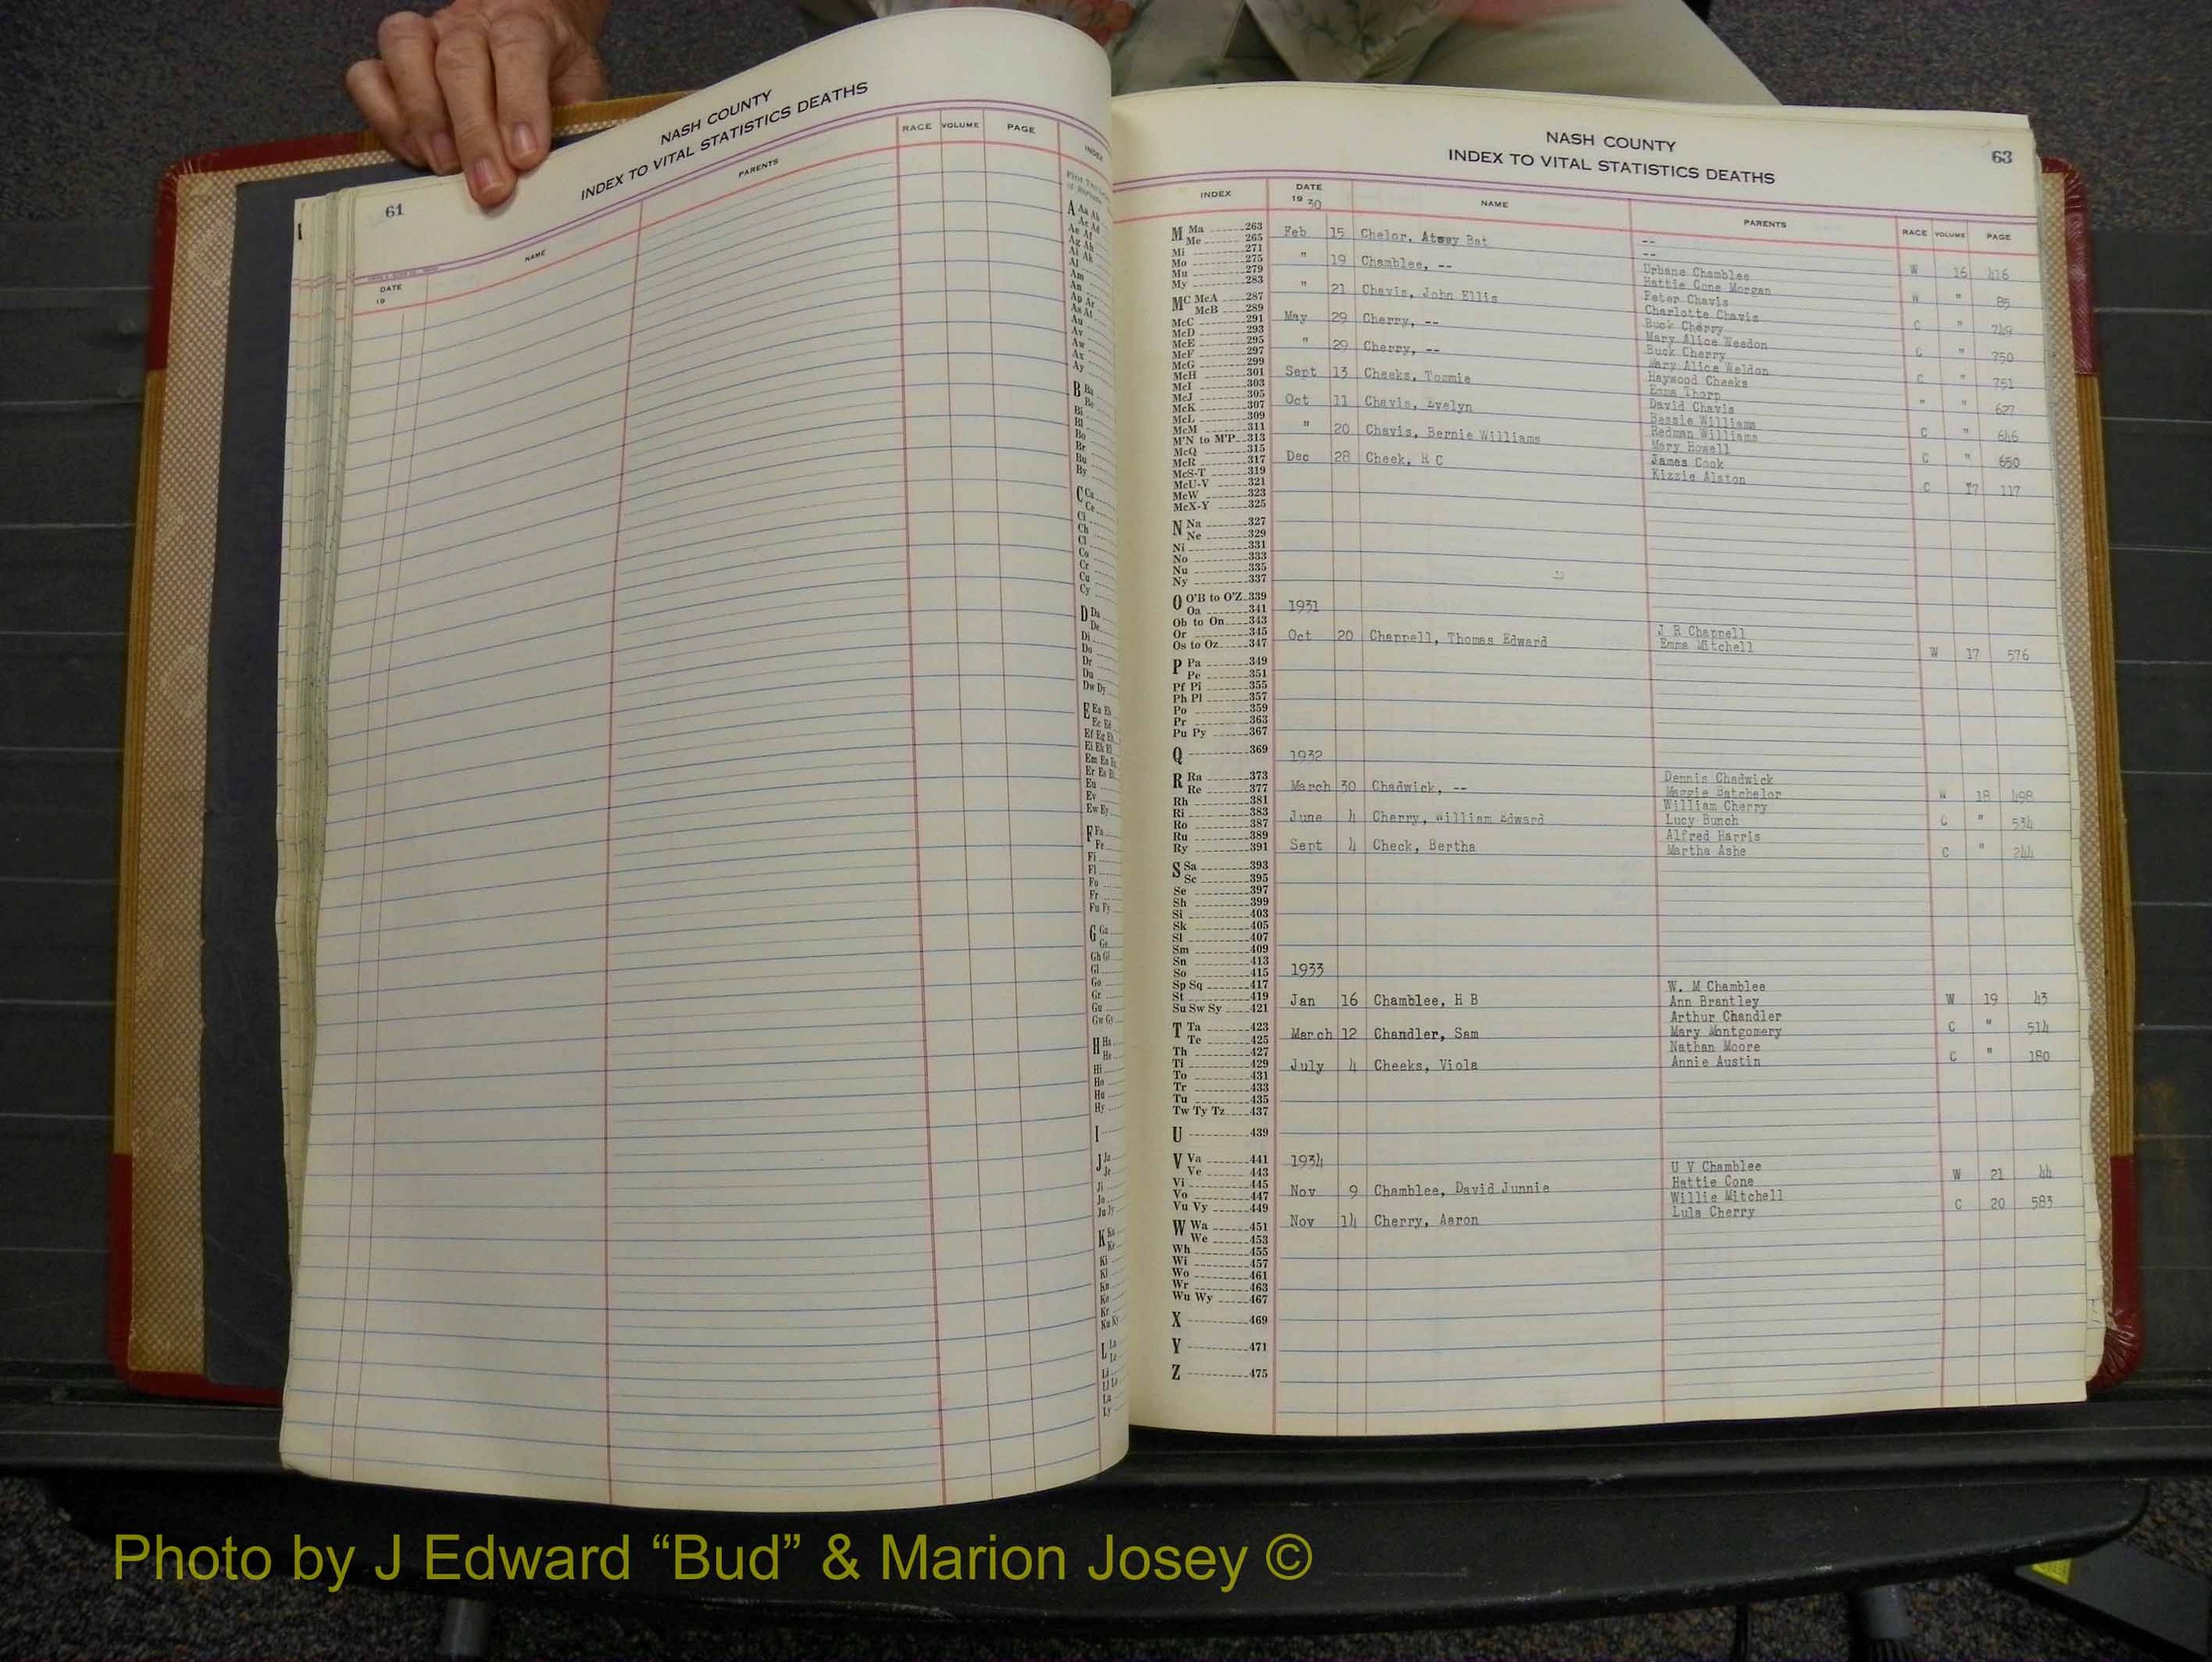 NASH COUNTY
INDEX TO VITAL STATISTICS DEATHS
61
DATE
19
NAME
PARENTS
RACE VOLUME PAGE
INDEX
A Aa Ah
Ac Ad
Ae Af
Ag Ah
Ai Ak
Al
Am
An
Ap Ar
As At
Au
Av
Aw
Ax
Ay
B Ba
Be
Bi
Bl
Bo
Br
Bu
By
C Ca
Ce
Ci
Ch
Cl
Co
Cr
Cu
Cy
D Da
De
Di
Do
Dr
Du
Dw Dy
E Ea Eb
Ec Ed
Ef Eg Eh
Ei Ek El
Em En Eo
Er Es Et
Eu
Ev
Ew Ey
F Fa
Fe
Fi
Fl
Fo
Fr
Fu Fy
G Ga
Ge
Gh Gi
Gl
Go
Gr
Gu
Gw Gy
H Ha
He
Hi
Ho
Hu
Hy
I
J Ja
Je
Ji
Jo
Ju Jy
K Ka
Ke
Ki
Kl
Kn
Ko
Kr
Ku Ky
L La
Le
Li
Ll Lo
Lu
Ly
NASH COUNTY
INDEX TO VITAL STATISTICS DEATHS
63
INDEX DATE 19 30 NAME PARENTS RACE VOLUME PAGE
M Ma 263
Me 265
Mi 271
Mo 275
Mu 279
My 283
Mc McA 287
McB 289
McC 291
McD 293
McE 295
McF 297
McG 299
McH 301
McI 303
McJ 305
McK 307
McL 309
McM 311
M'N to M'P 313
McQ 315
McR 317
McS-T 319
McU-V 321
McW 323
McX-Y 325
N Na 327
Ne 329
Ni 331
No 333
Nu 335
Ny 337
O O'B to O'Z 339
Oa 341
Ob to On 343
Or 345
Os to Oz 347
P Pa 349
Pe 351
Pf Pi 355
Ph Pl 357
Po 359
Pr 363
Pu Py 367
Q 369
R Ra 373
Re 377
Rh 381
Ri 383
Ro 387
Ru 389
Ry 391
S Sa 393
Sc 395
Se 397
Sh 399
Si 403
Sk 405
Sl 407
Sm 409
Sn 413
So 415
Sp Sq 417
St 419
Su Sw Sy 421
T Ta 423
Te 425
Th 427
Ti 429
To 431
Tr 433
Tu 435
Tw Ty Tz 437
U 439
V Va 441
Ve 443
Vi 445
Vo 447
Vu Vy 449
W Wa 451
We 453
Wh 455
Wi 457
Wo 461
Wr 463
Wu Wy 467
X 469
Y 471
Z 475
Feb 15 Chelor, Bat --
-- W 16 416
" 19 Chamblee, -- Urbane Chamblee
Hattie Cone Morgan W " 85
" 21 Chavis, John Ellis Peter Chavis
Charlotte Chavis C " 749
May 29 Cherry, -- Buck Cherry
Mary Alice Weedon C " 750
" 29 Cherry, -- Buck Cherry
Mary Alice Weldon C " 751
Sept 13 Cheeks, Tommie Haywood Cheeks
Emma Thorp " " 627
Oct 11 Chavis, Evelyn David Chavis
Bessie Williams C " 646
" 20 Chavis, Bernie Williams Redman Williams
Mary Howell C " 650
Dec 28 Cheek, R C James Cook
Kizzie Alston C 17 117
1931
Oct 20 Chappell, Thomas Edward J R Chappell
Emma Mitchell W 17 576
1932
March 30 Chadwick, -- Dennis Chadwick
Maggie Batchelor W 18 498
June 4 Cherry, William Edward William Cherry
Lucy Bunch C " 534
Sept 4 Check, Bertha Alfred Harris
Martha Ashe C " 244
1933
Jan 16 Chamblee, H B W. M Chamblee
Ann Brantley W 19 43
March 12 Chandler, Sam Arthur Chandler
Mary Montgomery C " 514
July 4 Cheeks, Viola Nathan Moore
Annie Austin C " 180
1934
Nov 9 Chamblee, David Junnie U V Chamblee
Hattie Cone W 21 44
Nov 14 Cherry, Aaron Willie Mitchell
Lula Cherry C 20 583
Photo by J Edward “Bud” & Marion Josey ©